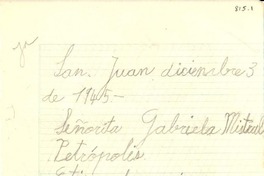 815.1
San. Juan diciembre 3
de 1945-
Señorita Gabriela Mistral
Petrópolis.